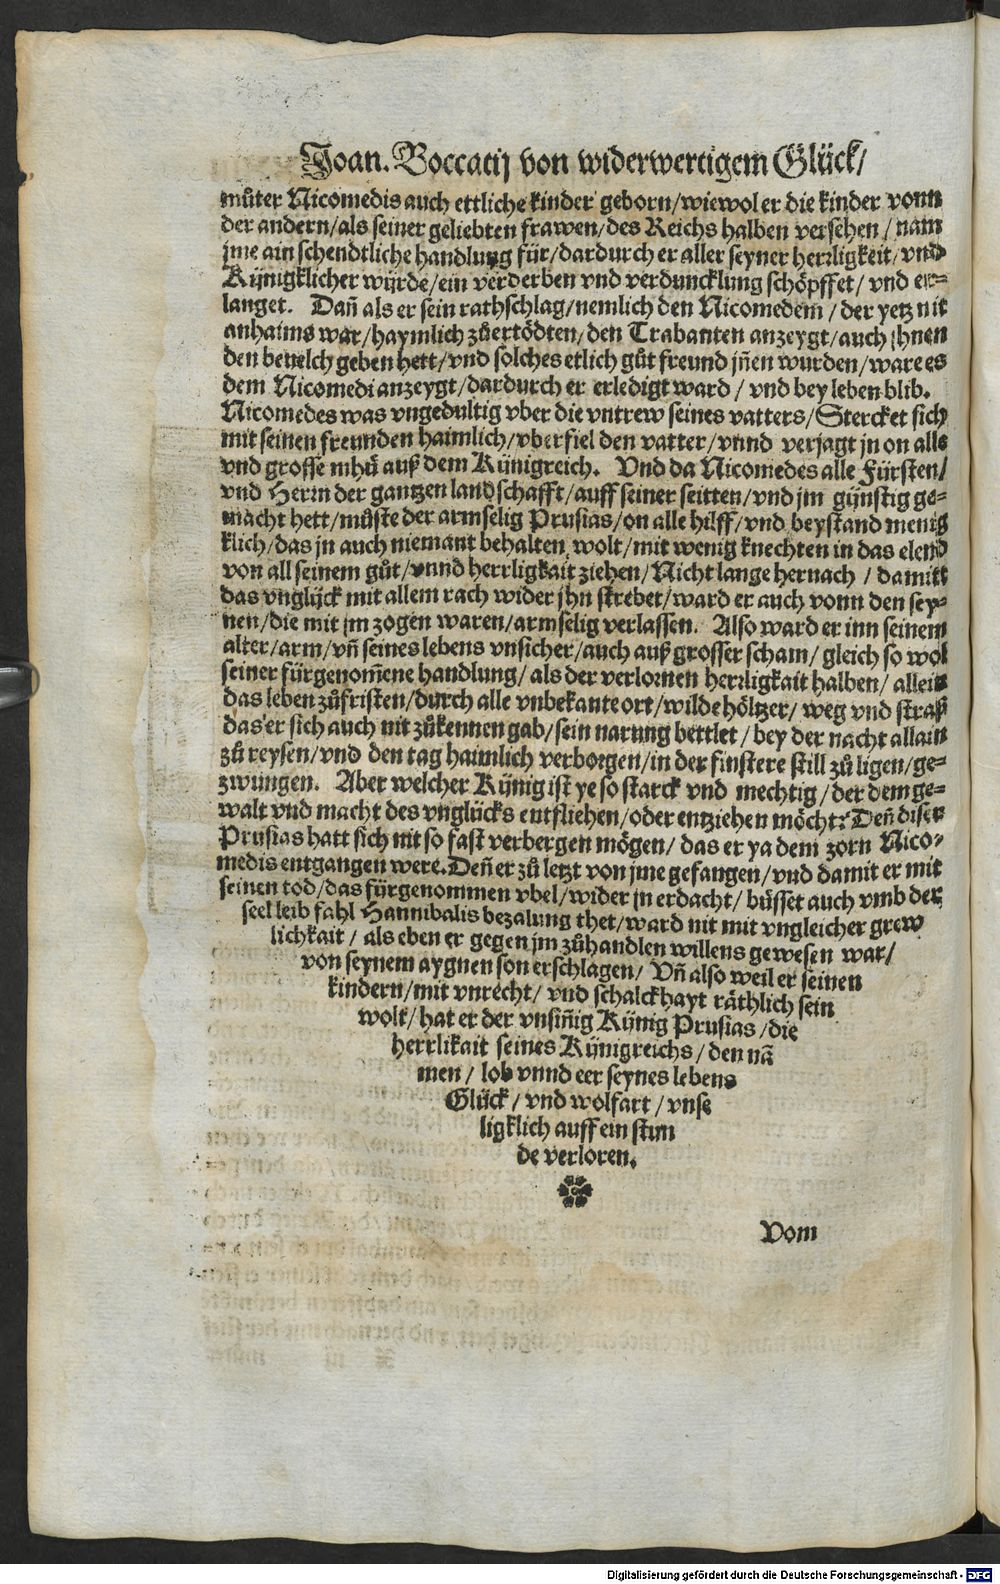 Joan. Boccatij von widerwertigem Glück/
můter Nicomedis auch ettliche kinder geborn/wiewol er die kinder vonn
der andern/als seiner geliebten frawen/des Reichs halben versehen/nam
jme ain schendtliche handlung für/dardurch er aller seyner herrligkeit/vnd
Kÿnigklicher würde/ein verderben vnd verduncklung schöpffet/vnd er-
langet. Dañ als er sein rathschlag/nemlich den Nicomedem/der yetz nit
anhaims war/haymlich zůertödten/den Trabanten anzeygt/auch jhnen
den beuelch geben hett/vnd solches etlich gůt freund jñen wurden/ware es
dem Nicomedi anzeygt/dardurch er erledigt ward/vnd bey leben blib.
Nicomedes was vngedultig vber die vntrew seines vatters/Stercket sich
mit seinen freunden haimlich/vberfiel den vatter/vnnd verjagt jn on alle
vnd grosse mhů auß dem Künigreich. Vnd da Nicomedes alle Fürsten/
vnd Herrn der gantzen landschafft/auff seiner seitten/vnd jm günstig ge-
macht hett/můste der armselig Prusias/on alle hilff/vnd beystand menig
klich/das jn auch niemant behalten wolt/mit wenig knechten in das elend
von all seinem gůt/vnnd herrligkait ziehen/Nicht lange hernach/damitt
das vnglÿck mit allem rach wider jhn strebet/ward er auch vonn den sey-
nen/die mit jm zogen waren/armselig verlassen. Also ward er inn seinem
alter/arm/vñ seines lebens vnsicher/auch auß grosser scham/gleich so wol
seiner fürgenom̃ene handlung/als der verlornen herrligkait halben/allein
das leben zůfristen/durch alle vnbekante ort/wilde höltzer/weg vnd straß
das er sich auch nit zůkennen gab/sein narung bettlet/bey der nacht allain
zů reysen/vnd den tag haimlich verborgen/in der finstere still zů ligen/ge-
zwungen. Aber welcher Kÿnig ist ye so starck vnd mechtig/der dem ge-
walt vnd macht des vnglücks entfliehen/oder entziehen möcht? Deñ diser
Prusias hatt sich nit so fast verbergen mögen/das er ya dem zorn Nico-
medis entgangen were. Deñ er zů letzt von jme gefangen/vnd damit er mit
seinen tod/das fürgenommen vbel/wider jn erdacht/büsset auch vmb der
seel leib fahl Hannibalis bezalung thet/ward nit mit vngleicher grew
lichkait/als eben er gegen jm zůhandlen willens gewesen war/
von seynem aygnen son erschlagen/Vñ also weil er seinen
kindern/mit vnrecht/vnd schalckhayt räthlich sein
wolt/hat er der vnsiñig Kÿnig Prusias/die
herrlikait seines Kÿnigreichs/den nã
men/lob vnnd eer seynes lebens
Glück/vnd wolfart/vnse
ligklich auff ein stun
de verloren.
Vom
Digitalisierung gefördert durch die Deutsche Forschungsgemeinschaft - DFG